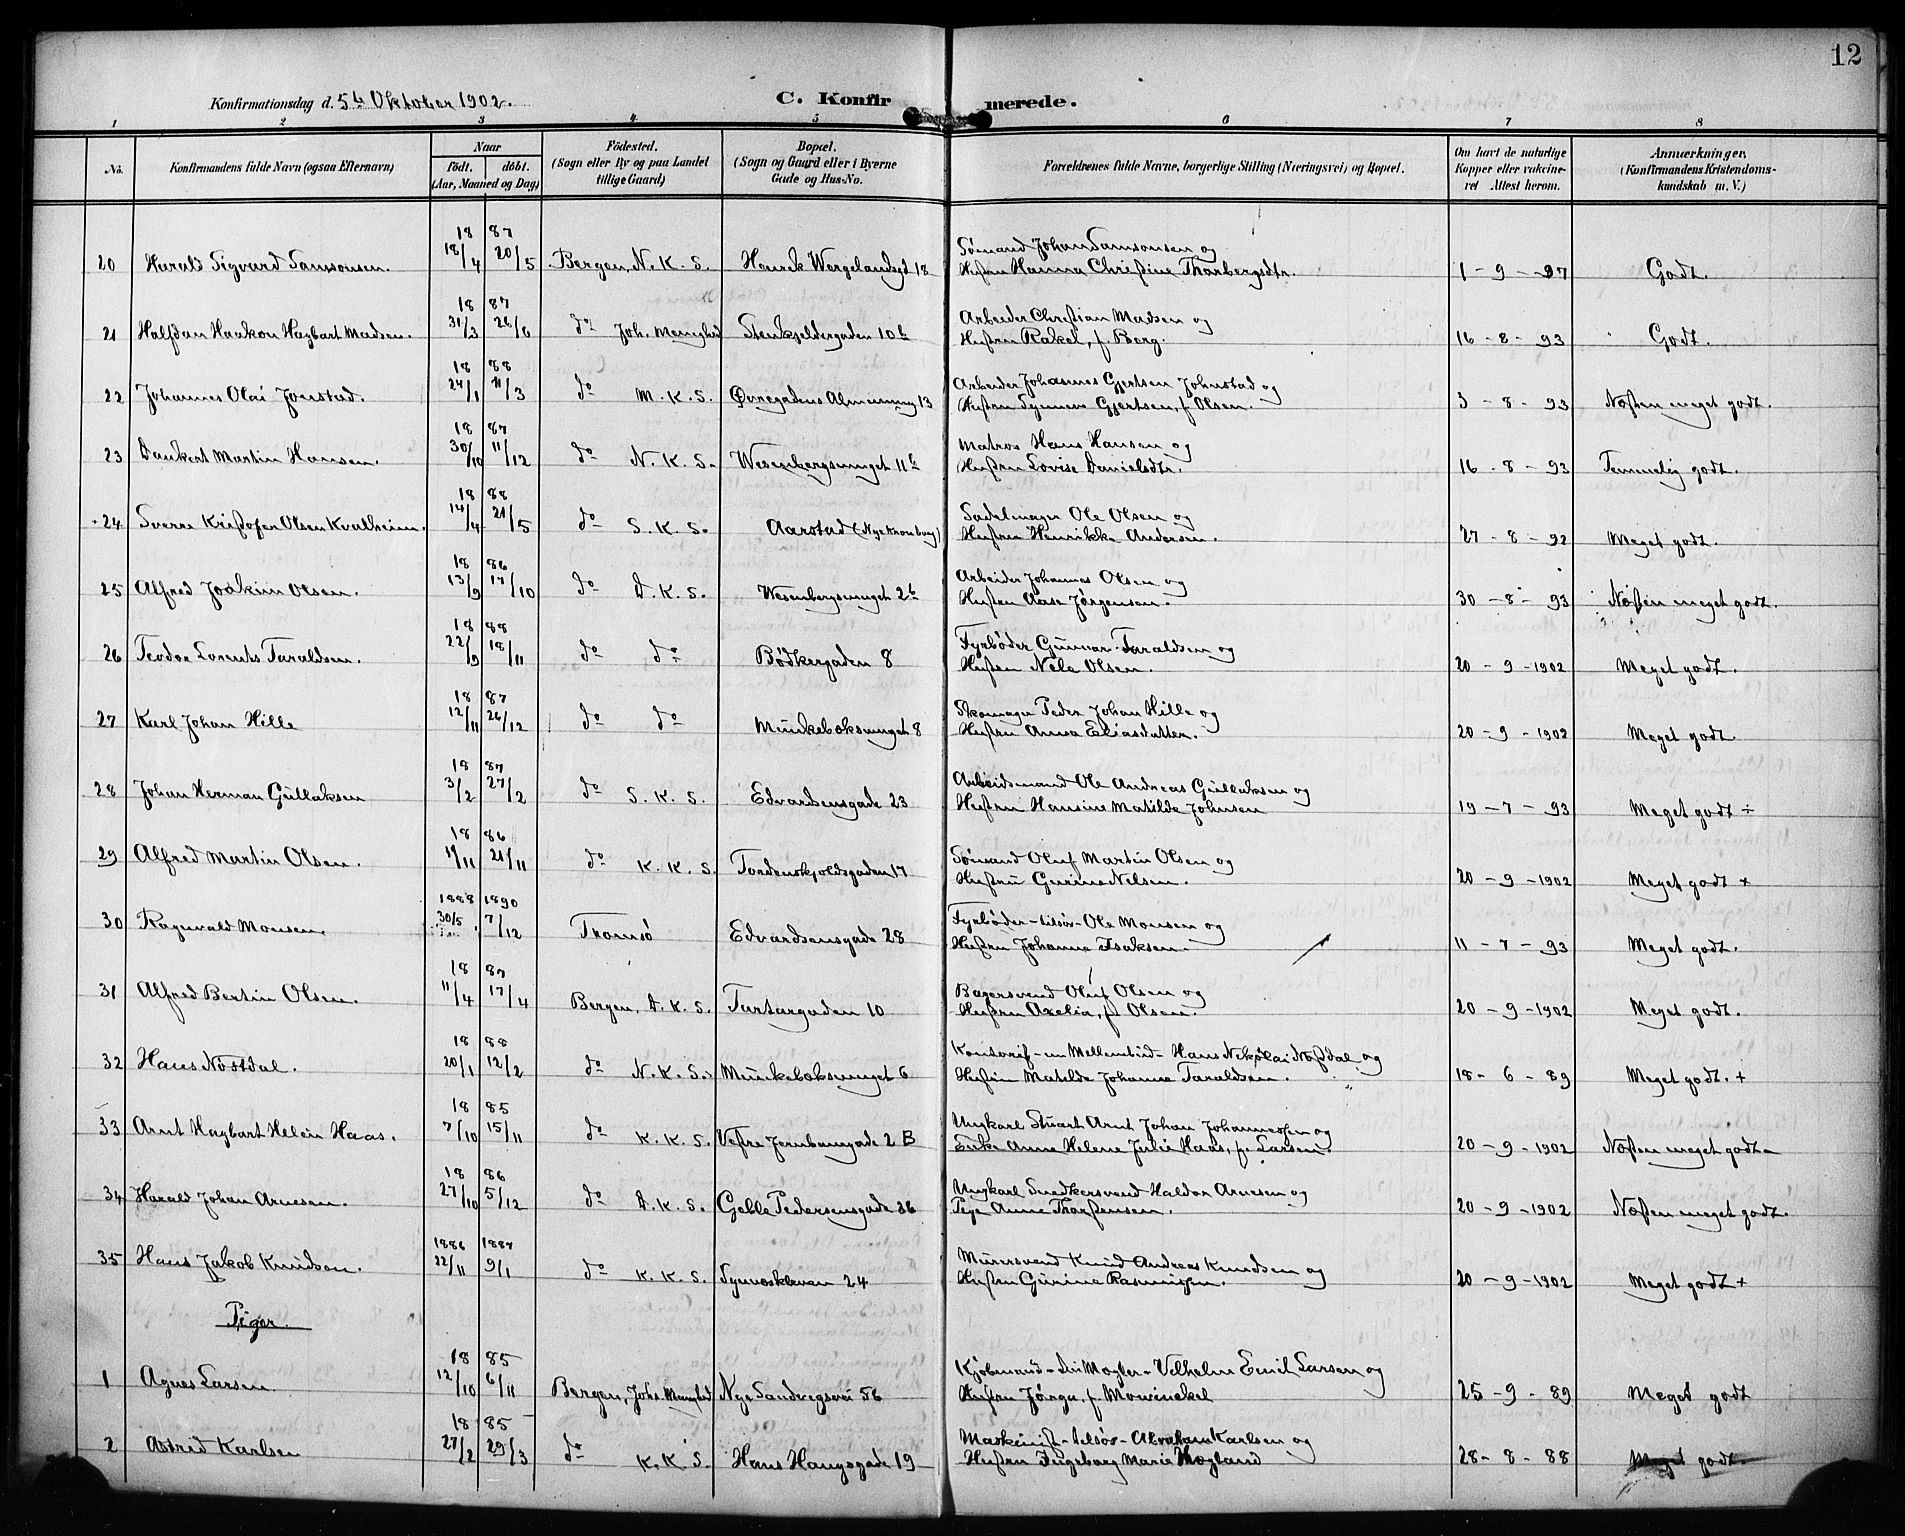 12
Konfirmationsdag d. 5te Oktober 1902. C. Konfirmerede.
1 2 3 4 5 6 7 8
No. Konfirmandens fulde Navn (ogsaa Efternavn) Naar født. døbt. (Aar, Maaned og Dag) Fødested. (Sogn eller By og paa Landet tillige Gaard) Bopæl. (Sogn og Gaard eller i Byerne Gade og Hus-No. Forældrenes fulde Navne, borgerlige Stilling (Næringsvei) og Bopæl. Om havt de naturlige Kopper eller vakcineret Attest herom. Anmærkninger. (Konfirmandens Kristendomskundskab m. V.)
18 87
20 Harald Sigvard Samsonsen. 18/4 20/5 Bergen, N. K. S. Henrik Wergelandsgd 18 Sømand Johan Samsonsen og
Hustru Hanna Christine Thorbergsdtr. 1 - 9 - 97 Godt.
18 87
21 Halfdan Haakon Hagbart Madsen. 31/3 26/6 do Joh. Menighed Stenkjeldergaden 10b Arbeider Christian Madsen og
Hustru Rakel, f. Berg. 16 - 8 - 93 Godt.
18 88
22 Johannes Olai 24/1 11/3 do M. K. S. Øvregadens Almenning 13 Arbeider Johannes Gjertsen Johnstad og
Hustru Synneve Gjertsen, f. Olsen. 3 - 8 - 93 Næsten meget godt.
18 87
23 Dankert Martin Hansen. 30/10 11/12 do N. K. S. Wesenbergsmuget 11b Matros Hans Hansen og
Hustru Lovise Danielsdtr. 16 - 8 - 93 Temmelig godt.
18 88
24 Sverre Kristofer Olsen Kvalheim. 14/4 21/5 do S. K. S. Aarstad (Nye Kronborg) Sadelmager Ole Olsen og
Hustru Henrikke Andersen. 27 - 8 - 92 Meget godt.
18 86
25 Alfred Joakim Olsen. 13/9 17/10 do D. K. S. Wesenbergsmuget 2b Arbeider Johannes Olsen og
Hustru Aase Jørgensen. 30 - 8 - 93 Næsten meget godt.
18 88
26 Teodor Lorents Taraldsen. 22/9 18/11 do do Bødkergaden 8 Fyrbøder Gunnar Taraldsen og
Hustru Nela Olsen. 20 - 9 - 1902 Meget godt.
18 87
27 Karl Johan Hille 12/11 26/12 do do Munkebæksmuget 8 Skomager Peder Johan Hille og
Hustru Anna Eliasdatter. 20 - 9 - 1902 Meget godt.
18 87
28 Johan Herman Gullaksen 3/2 27/2 do S. K. S. Edvardsensgade 23 Arbeidsmand Ole Andreas Gullaksen og
Hustru Hansine Matilde Johnsen 19 - 7 - 93 Meget godt ÷
18 86
29 Alfred Martin Olsen. 11/11 21/11 do K. K. S. Tordenskjoldsgaden 17 Sømand Oluf Martin Olsen og
Hustru Gurine Nilsen. 20 - 9 - 1902 Meget godt +
1888 1890
30 Ragnvald Monsen. 30/5 7/12 Tromsø Edvardsensgade 28 Fyrbøder - tilsøs - Ole Monsen og
Hustru Johanna Isaksen. 11 - 7 - 93 Meget godt.
18 87
31 Alfred Bertin Olsen. 11/4 17/4 Bergen, D. K. S. Tartargaden 10 Bagersvend Oluf Olsen og
Hustru Axelia, f. Olsen. 20 - 9 - 1902 Meget godt.
18 88
32 Hans Nøstdal. 20/1 12/2 do N. K. S. Munkebæksmuget 6 Hans Nikolai Nøstdal og
Hustru Matilde Johanna Taraldsen. 18 - 6 - 89 Meget godt. +
18 85
33 Arnt Hagbart Helein Haas. 7/10 15/11 do K. K. S. Vestre Jernbanegade 2 B Ungkarl Stuart Arnt Johan Johannessen og
Enke Anne Helene Julie Haas, f. Larsen. 20 - 9 - 1902 Næsten meget godt
18 86
34 Harald Johan Arnesen. 27/10 5/12 do D. K. S. Geble Pedersensgade 36 Ungkarl Snedkersvend Haldor Arnesen og
Pige Anne Thorstensen. 20 - 9 - 1902 Næsten meget godt.
1886 1887
35 Hans Jakob Knudsen. 22/11 9/1 do K. K. S. Synneskleven 24 Murersvend Knud Andreas Knudsen og
Hustru Gurine Rasmussen. 20 - 9 - 1902 Meget godt +
Piger.
18 85
1 Agnes Larsen. 12/10 6/11 Bergen, Johs. Menighed Nye Sandvigsvei 56 Kjøbmand - Mægler - Vilhelm Emil Larsen og
Hustru Jørga, f. Mowinckel 25 - 9 - 89 Meget godt
18 85
2 Astrid Karlsen 27/2 29/3 do K. K. S. Hans Haugsgade 19 Maskinist - tilsøs - Abraham Karlsen og
Hustru Ingeborg Marie Høgland 28 - 8 - 88 Meget godt.